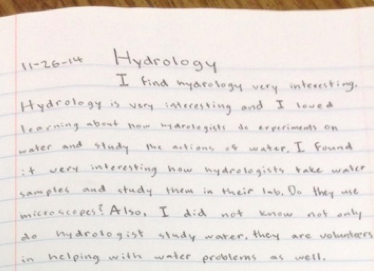 11-26-14 Hydrology
I find hydrology very interesting.
Hydrology is very interesting and I loved
learning about how hydrologists do experiments on
water and study the actions of water. I found
it very interesting how hydrologists take water
samples and study them in their lab. Do they use
microscopes? Also, I did not know not only
do hydrologist study water, they are volunteers
in helping with water problems as well.